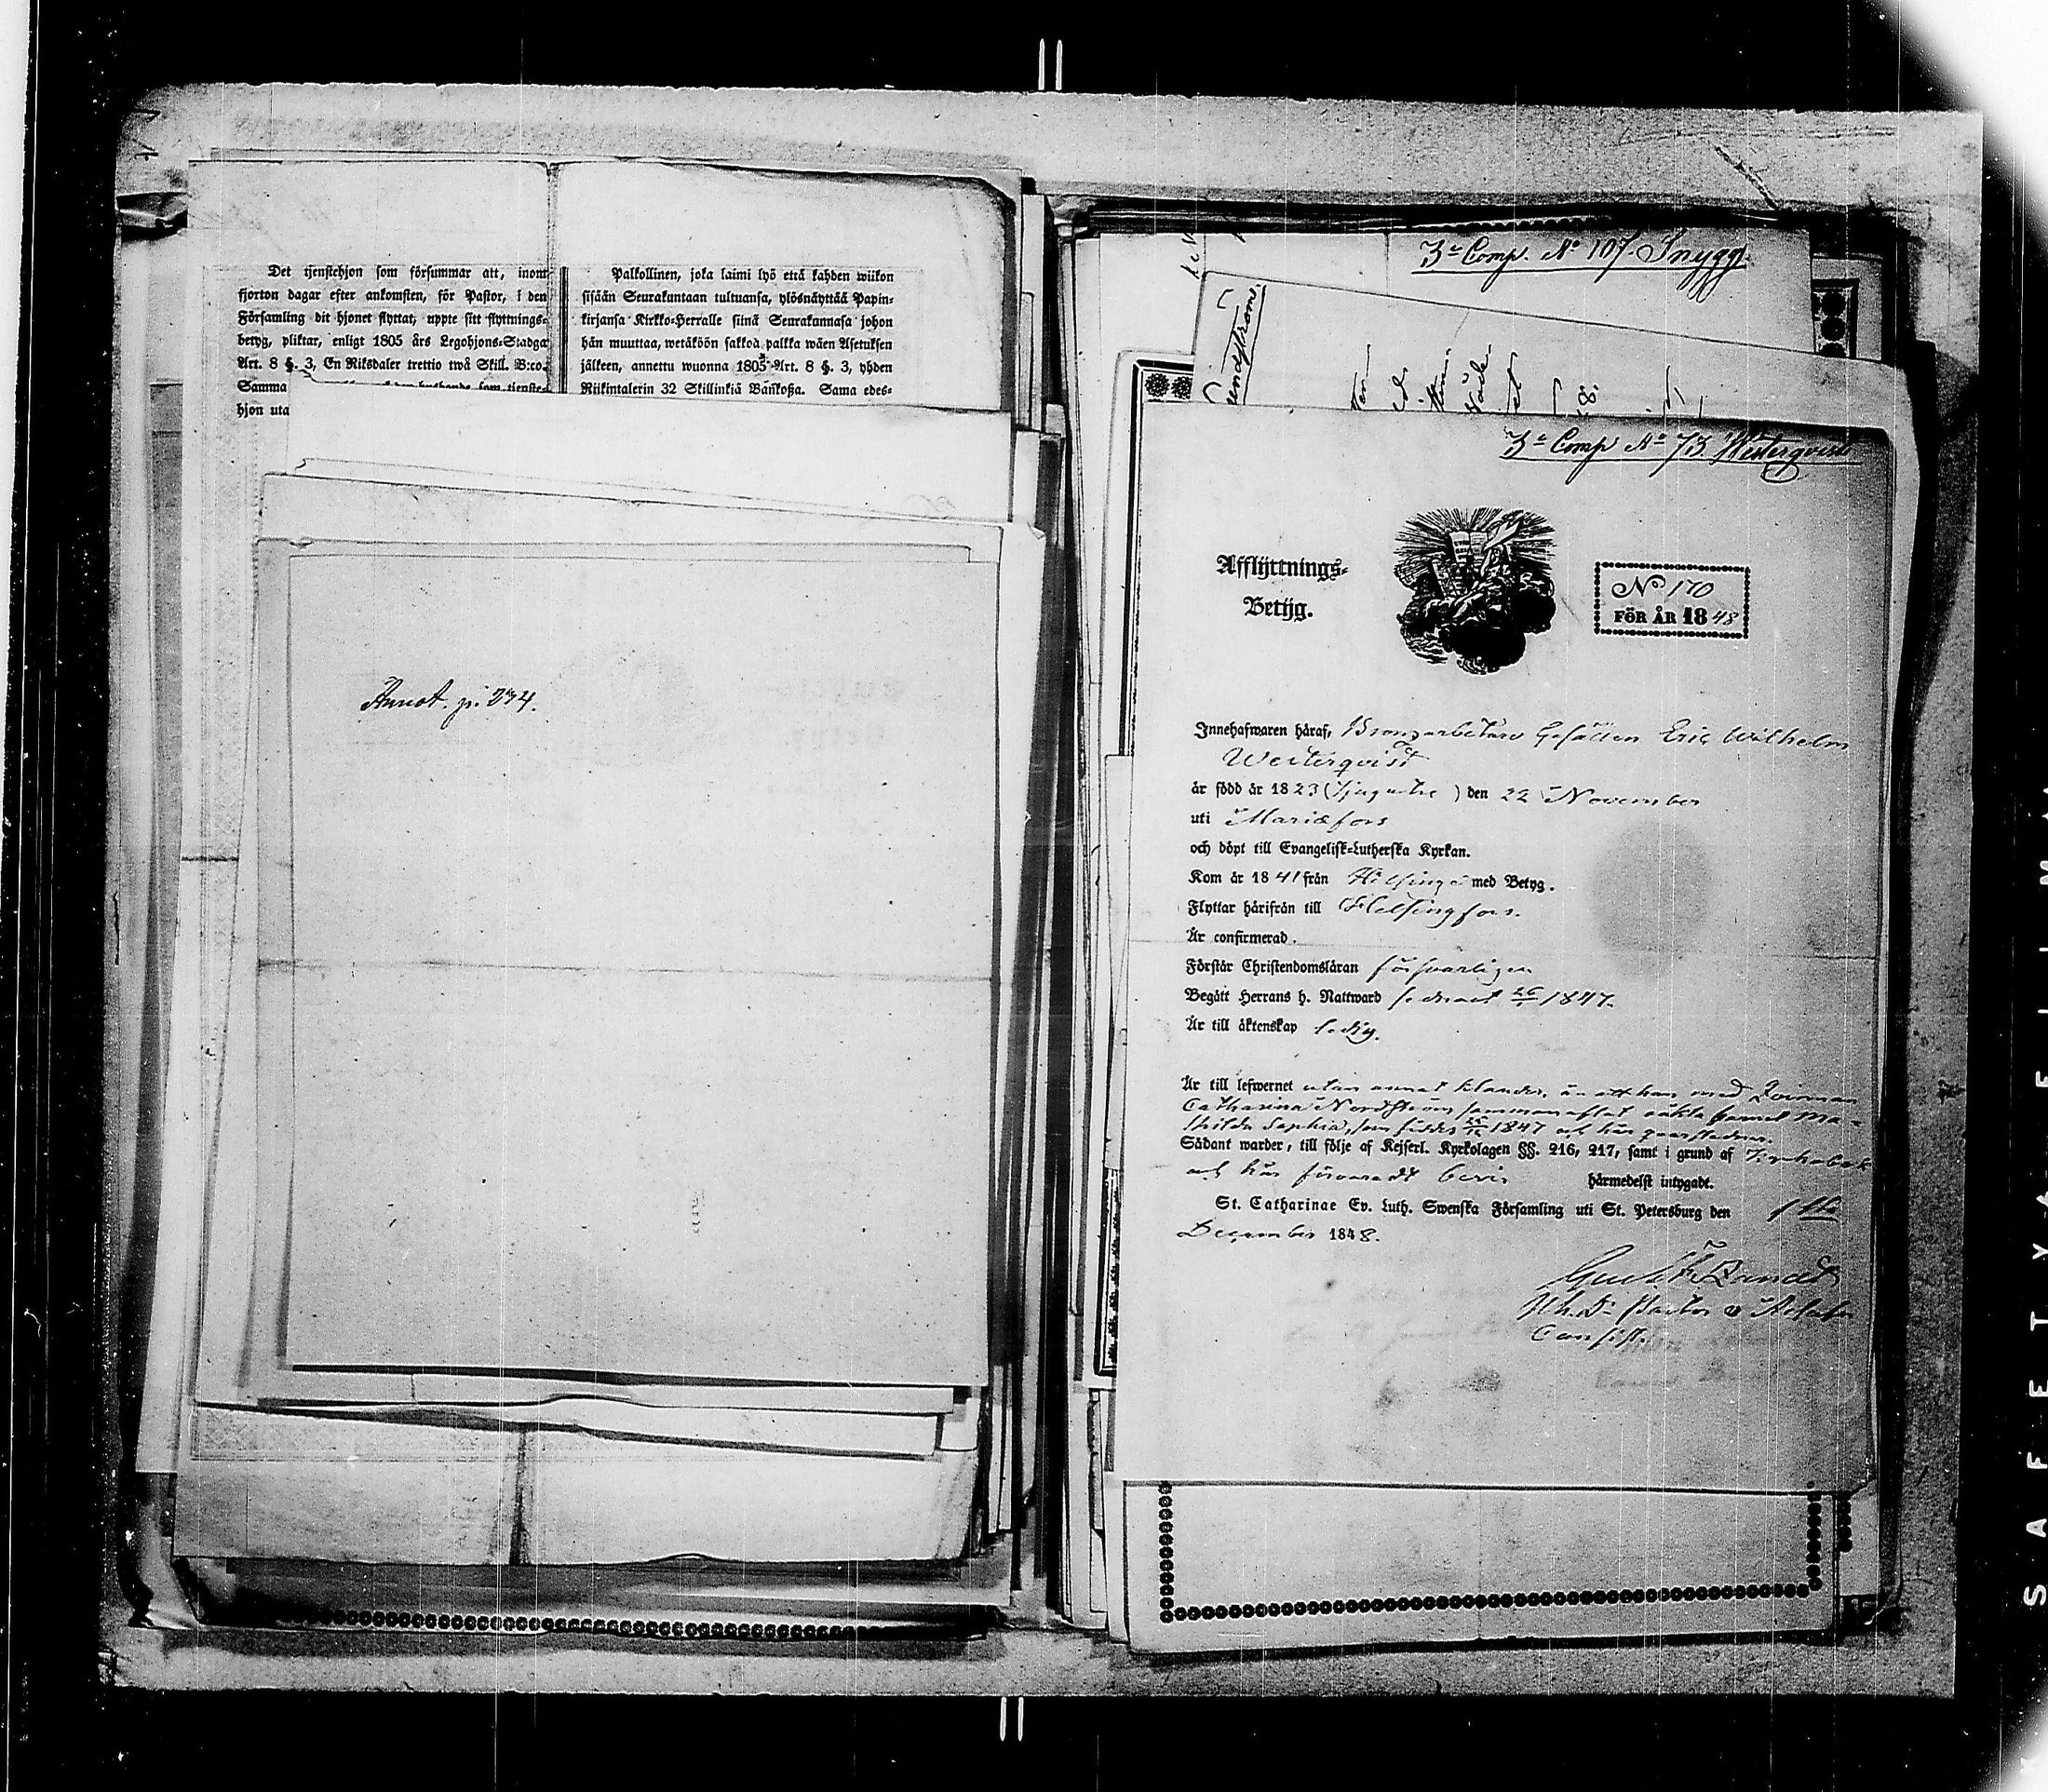 Det tjenstehjon som försummar att, inom
fjorton dagar efter ankomsten, för Pastor, i den
Församling dit hjonet flyttat, uppte sitt flyttnings-
betyg, pliktar, enligt 1805 års Legohjons-Stadga
Art. 8 §. 3, En Riksdaler trettio twå Skill. B:co.
Samma
hjon uta
Palkollinen, joka laimi lyö että kahden wiikon
sisään Seurakuntaan tultuansa, ylösnäyttää Papin-
kirjansa Kirkko-Herralle siinä Seurakunnasa johon
hän muuttaa, wetäköön sakkoa palkka wäen Asetuksen
jälkeen, annettu wuonna 1805 Art. 8 §. 3, yhden
Riikintalerin 32 Skillinkiä Bankoßa. Sama edes-
Annot. p. 234.
3e Comp. No 107. Snygg
3e Comp No 73 Westerqvist
Afflyttnings-
Betyg.
No 170
FÖR ÅR 1848
Innehafwaren häraf, Bronzarbetare Gesällen Eric Wilhelm
Westerqvist
är född år 1823 (Tjugutre) den 22 November
uti Mariefors
och döpt till Evangelisk-Lutherska Kyrkan.
Kom år 1841 från Helsinge med Betyg.
Flyttar härifrån till Helsingfors.
Är confirmerad.
Förstår Christendomsläran försvarligen
Begått Herrans h. Nattward senast 1847.
Är till äktenskap ledig.
Är till lefwernet utan annat klander, än att han med Qvinnan
Catharina Nordström sammanaflat oäkta barnet Ma-
thilda Sophia, som föddes 1847 och här qvarstadnar.
Sådant warder, till följe af Kejserl. Kyrkolagen §§. 216, 217, samt i grund af Kyrkobok
och här förvaradt bevis härmedelst intygadt.
St. Catharinae Ev. Luth. Swenska Församling uti St. Petersburg den
December 1848.
Gust. F. Zandt
Ph. Dr Pastor
Consist.